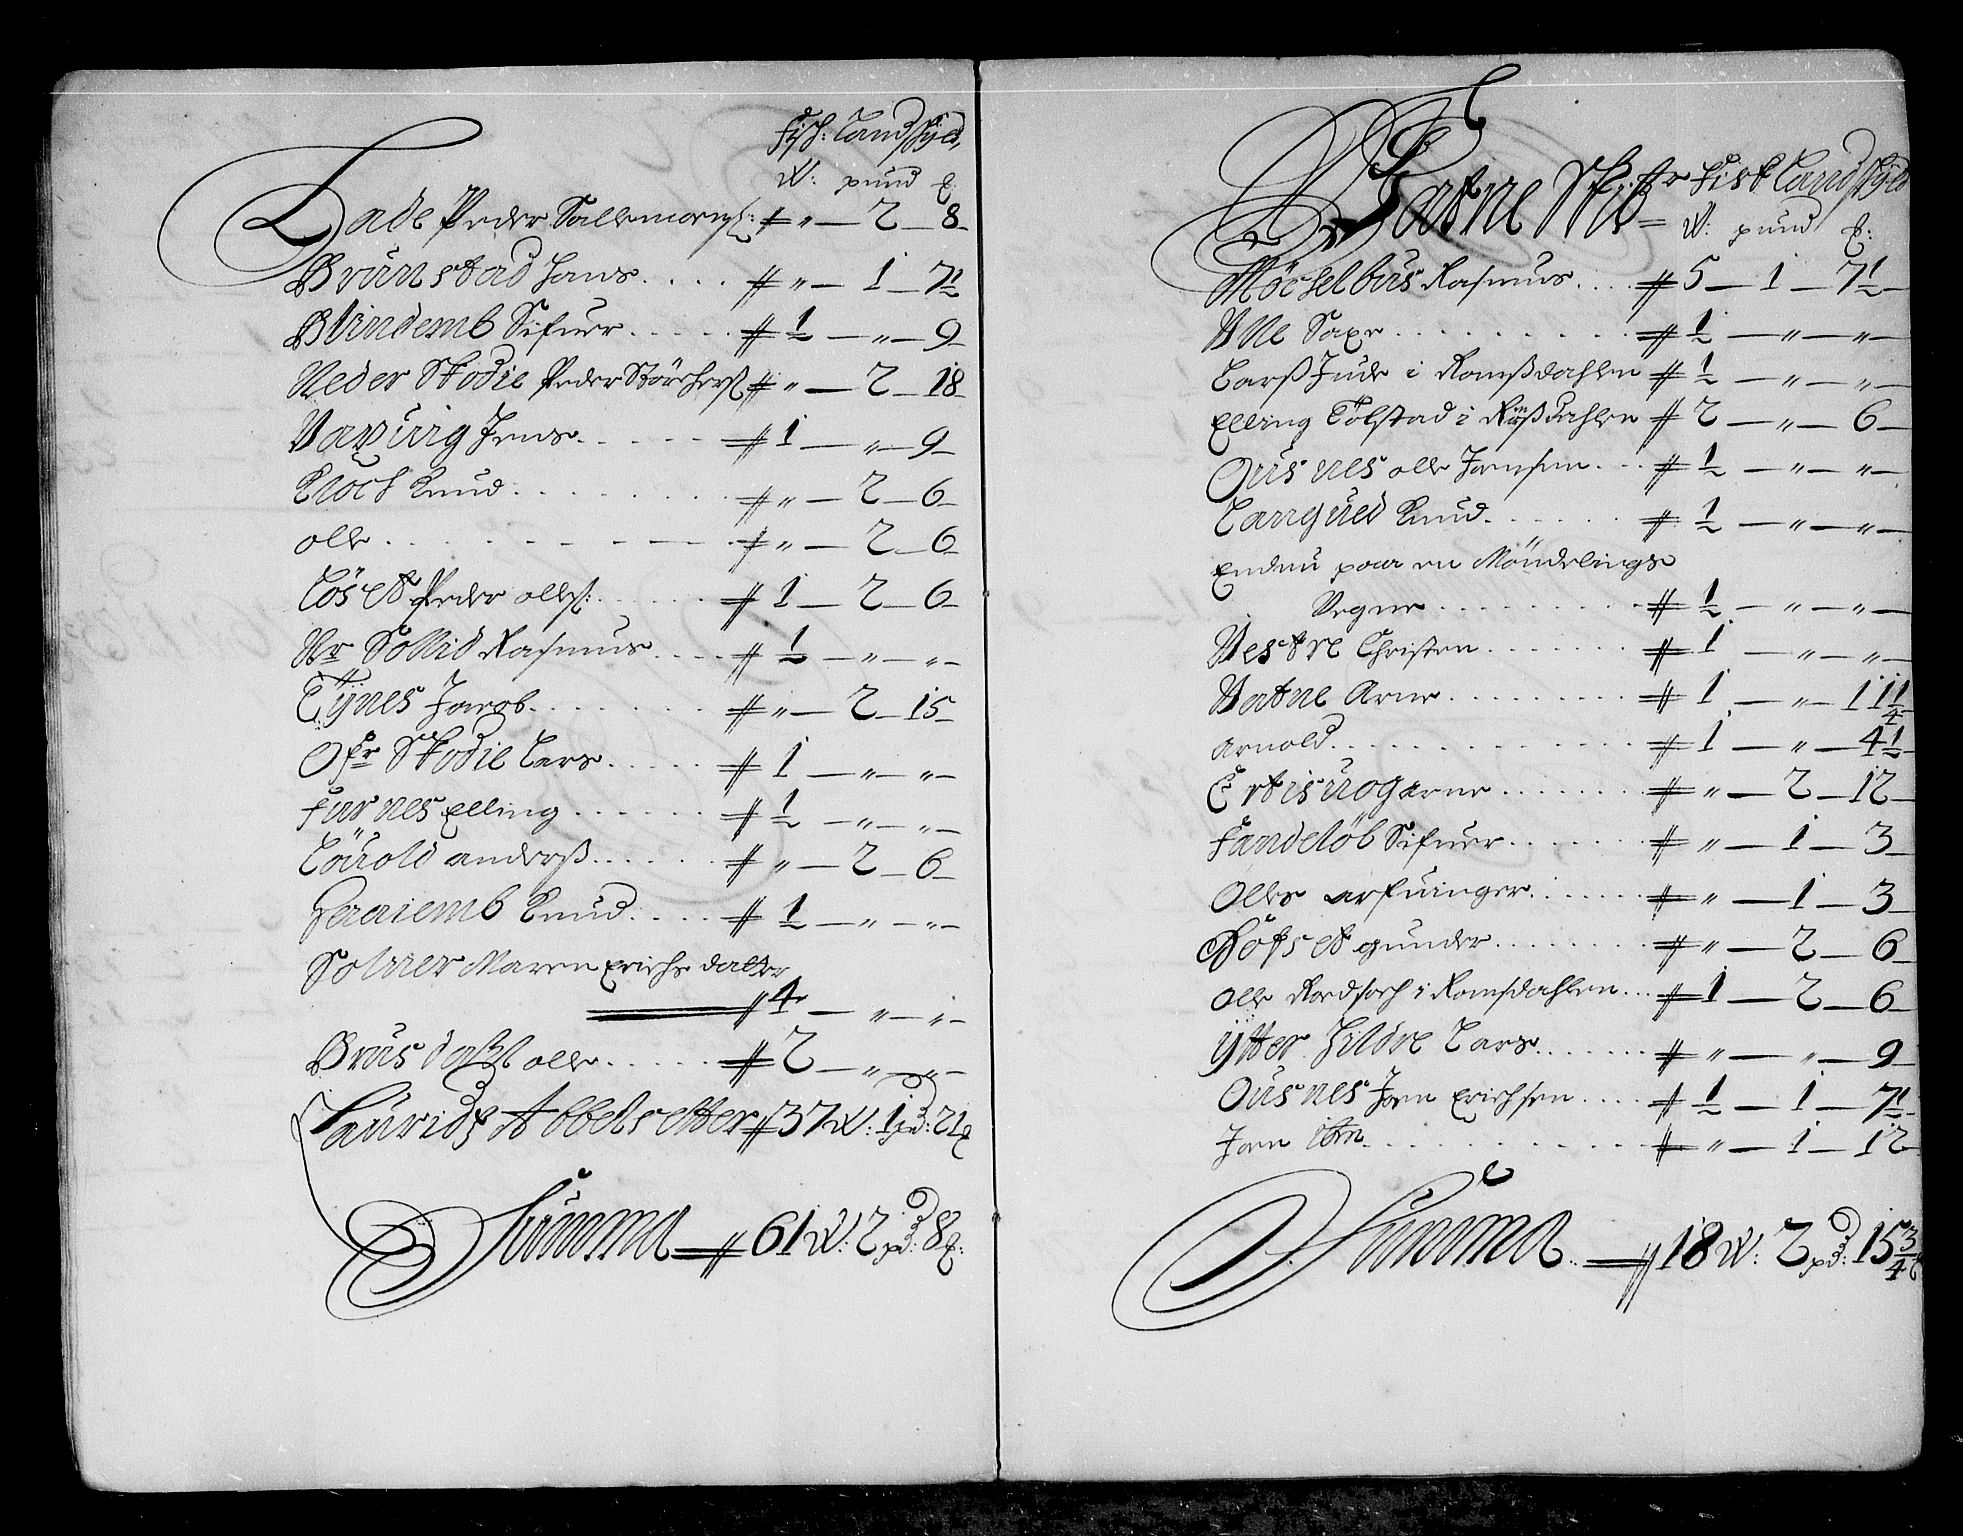 Fisk: Landschyld,
W: pund ℔
Lade Peder Sallemonß: # " — 2 — 8 —
Brunstad Hans .... # " — 1 — 7½
Blindemb Sifuer ..... # ½ — " — 9 —
Neder Skodie Peder Störchers # " — 2 — 18 —
Vaxuiig Jens ..... # 1 — " — 9 —
Kloch Knud ........ # " — 2 — 6 —
olle ........ # " — 2 — 6
Löset Peder olleß: ..... # 1 — 2 — 6 —
Nr Sollid Rasmus .... # ½ — " — " —
Tÿnes Jacob ....... # " — 2 — 15 —
Ofr Skodie Lars ..... # 1 — " — " —
Furnes Elling ...... # ½ — " — " —
Löuold anderß ..... # " — 2 — 6 —
Hareiemb Knud .... # ½ — " — " —
Solner Maren Erichs datter
# 4 — " — " —
Brusdahl olle ..... # 2 — " — " —
Lauridz Abbelsetter # 37 W: 1 pd: 21 ℔
Summa # 61 W: 2 pd: 8 ℔:
Vatne Skibr Fisk Landschyld
W: pund ℔:
Möchelbus Rasmus .... # 5 — 1 — 7½ —
Ulle Saxe .......... # ½ — " — " —
Larß Jude i Romßdahlen # ½ — " — " —
Elling Tolstad i Romßdahlen # 2 — " — 6 —
Ousnes olle Jornsen ... # ½ — " — " —
Langued Knud ...... # ½ — " — " —
Endnu paa en Möndelings
Vegne ......... # ½ — " — " —
Vestre Christen ....... # 1 — " — " —
Vatne Arne ........ # 1 — " — 11¼ —
Arnold ............ # 1 — " — 4½ —
Ertisuog arne ....... # " — 2 — 12 —
Fandelöb Sifuer ...... # " — 1 — 3 —
Olles arfuinger ...... # " — 1 — 3 —
Hofset gunder ....... # " — 2 — 6 —
Olle Rordsoch i Romsdahlen ... # 1 — 2 — 6 —
Ÿtter Hildre Lars ...... # " — " — 9 —
Ousnes Jorn Erichsen .... # ½ — 1 — 7½ —
Jorn ibm ......... # " — 1 — 12 —
Summa .. # 18 W: 2 pd: 15¾ ℔